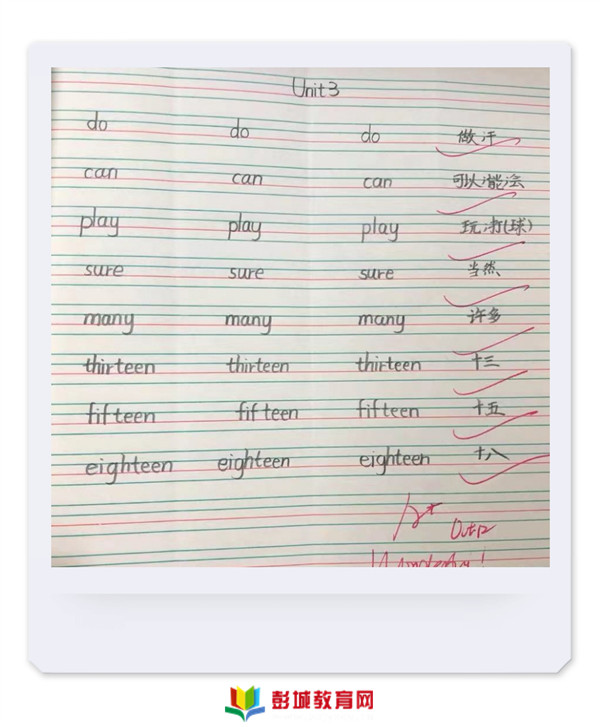 Unit 3
do do do 做;干
can can can 可以;能;会
play play play 玩;打(球)
sure sure sure 当然
many many many 许多
thirteen thirteen thirteen 十三
fifteen fifteen fifteen 十五
eighteen eighteen eighteen 十八
彭城教育网